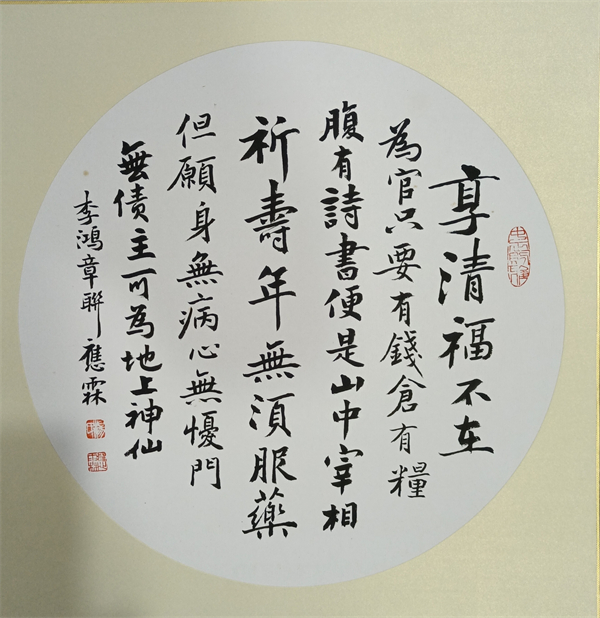 享清福不在
為官只要有錢倉有糧
腹有詩書便是山中宰相
祈壽年無須服藥
但願身無病心無憂門
無债主可為地上神仙
李鴻章聯應霖